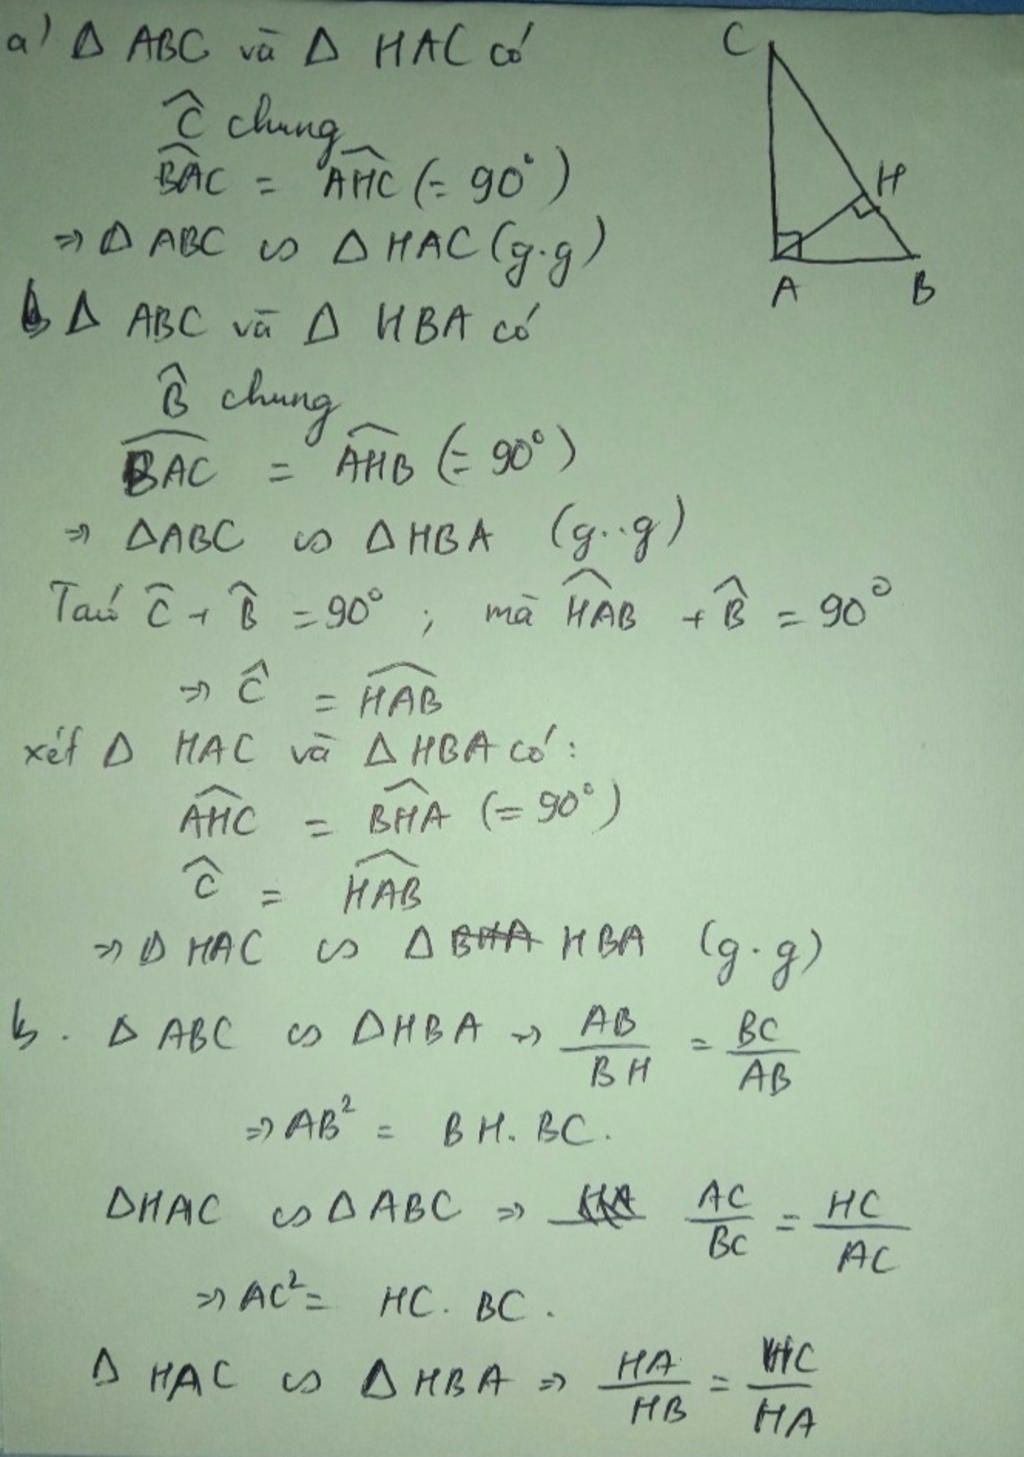 a) Δ ABC và Δ HAC có
Ĉ chung
\widehat{BAC} = \widehat{AHC} (= 90°)
⇒ Δ ABC ∽ Δ HAC (g.g)
Δ ABC và Δ HBA có
B̂ chung
\widehat{BAC} = \widehat{AHB} (= 90°)
⇒ ΔABC ∽ ΔHBA (g..g)
Ta có Ĉ + B̂ = 90° ; mà \widehat{HAB} + B̂ = 90°
⇒ Ĉ = \widehat{HAB}
xét Δ HAC và Δ HBA có:
\widehat{AHC} = \widehat{BHA} (= 90°)
Ĉ = \widehat{HAB}
⇒ Δ HAC ∽ Δ HBA (g.g)
b. Δ ABC ∽ ΔHBA ⇒ AB/BH = BC/AB
⇒ AB² = BH. BC.
ΔHAC ∽ Δ ABC ⇒ AC/BC = HC/AC
⇒ AC² = HC. BC.
Δ HAC ∽ Δ HBA ⇒ HA/HB = HC/HA
C
H
A
B